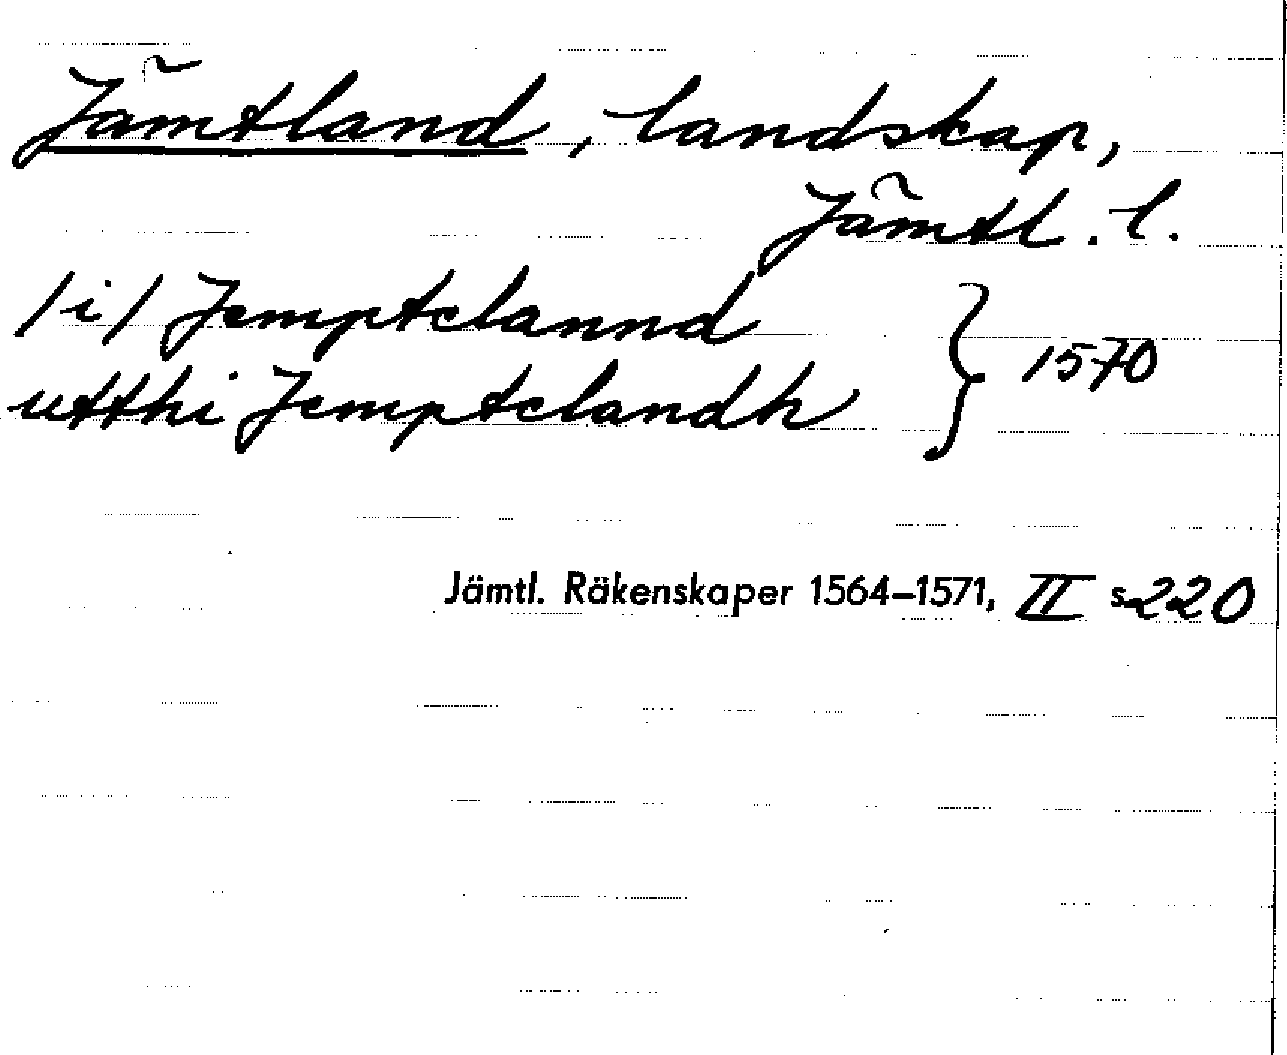 Jämtland, landskap,
Jämtl. l.
/i/ Jemptelannd
utthi Jemptelandh } 1570
Jämtl. Räkenskaper 1564–1571, II s 220